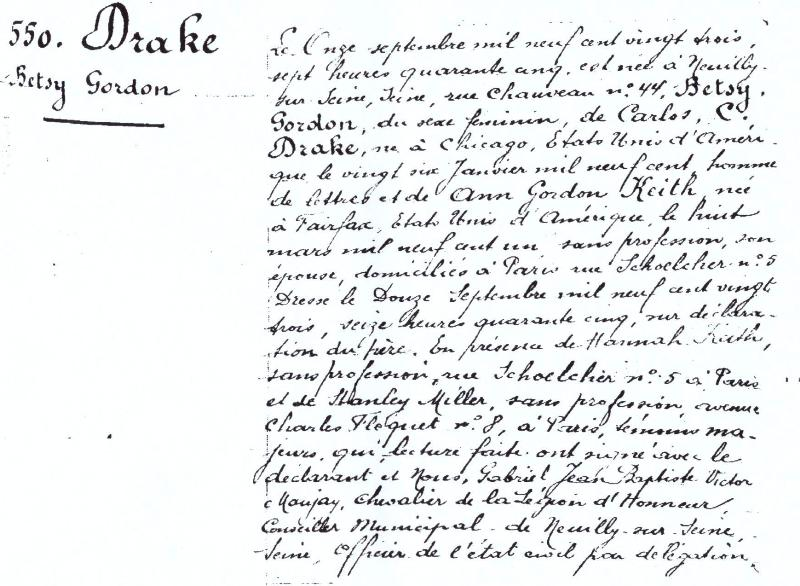 550. Drake
Betsy Gordon
Le Onze septembre mil neuf cent vingt trois,
sept heures quarante cinq, est née à Neuilly-
sur-Seine, Seine, rue Chauveau n° 44, Betsy,
Gordon, du sexe féminin, de Carlos, C.
Drake, né à Chicago, Etats Unis d'Améri-
que le vingt six Janvier mil neuf cent, homme
de lettres et de Ann Gordon Keith, née
à Fairfax, Etats Unis d'Amérique, le huit
mars mil neuf cent un sans profession, son
épouse, domiciliés à Paris rue Schoelcher n° 5
Dressé le Douze Septembre mil neuf cent vingt
trois, seize heures quarante cinq, sur déclara-
tion du père. En présence de Hannah Keith,
sans profession, rue Schoelcher n° 5 à Paris
et de Stanley Miller, sans profession, avenue
Charles Floquet n° 8, à Paris, témoins ma-
jeurs, qui, lecture faite ont signé avec le
déclarant et Nous, Gabriel Jean Baptiste Victor
Chevalier de la Légion d'Honneur,
Conseiller Municipal de Neuilly-sur-Seine,
Seine, Officier de l'état civil par délégation.